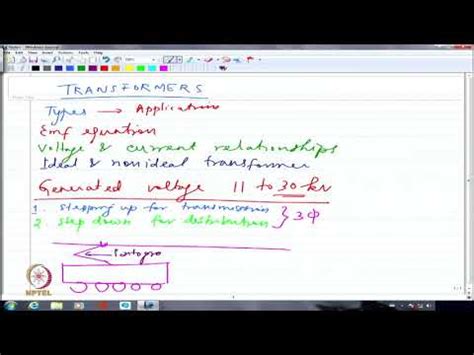 TRANSFORMERS
Types → Applications
Emf equation
Voltage & current relationships
Ideal & nonideal transformer
Generated voltage 11 to 30 kv
1. Stepping up for transmission
2. Step down for distribution } 3Φ
Pantogra
NPTEL